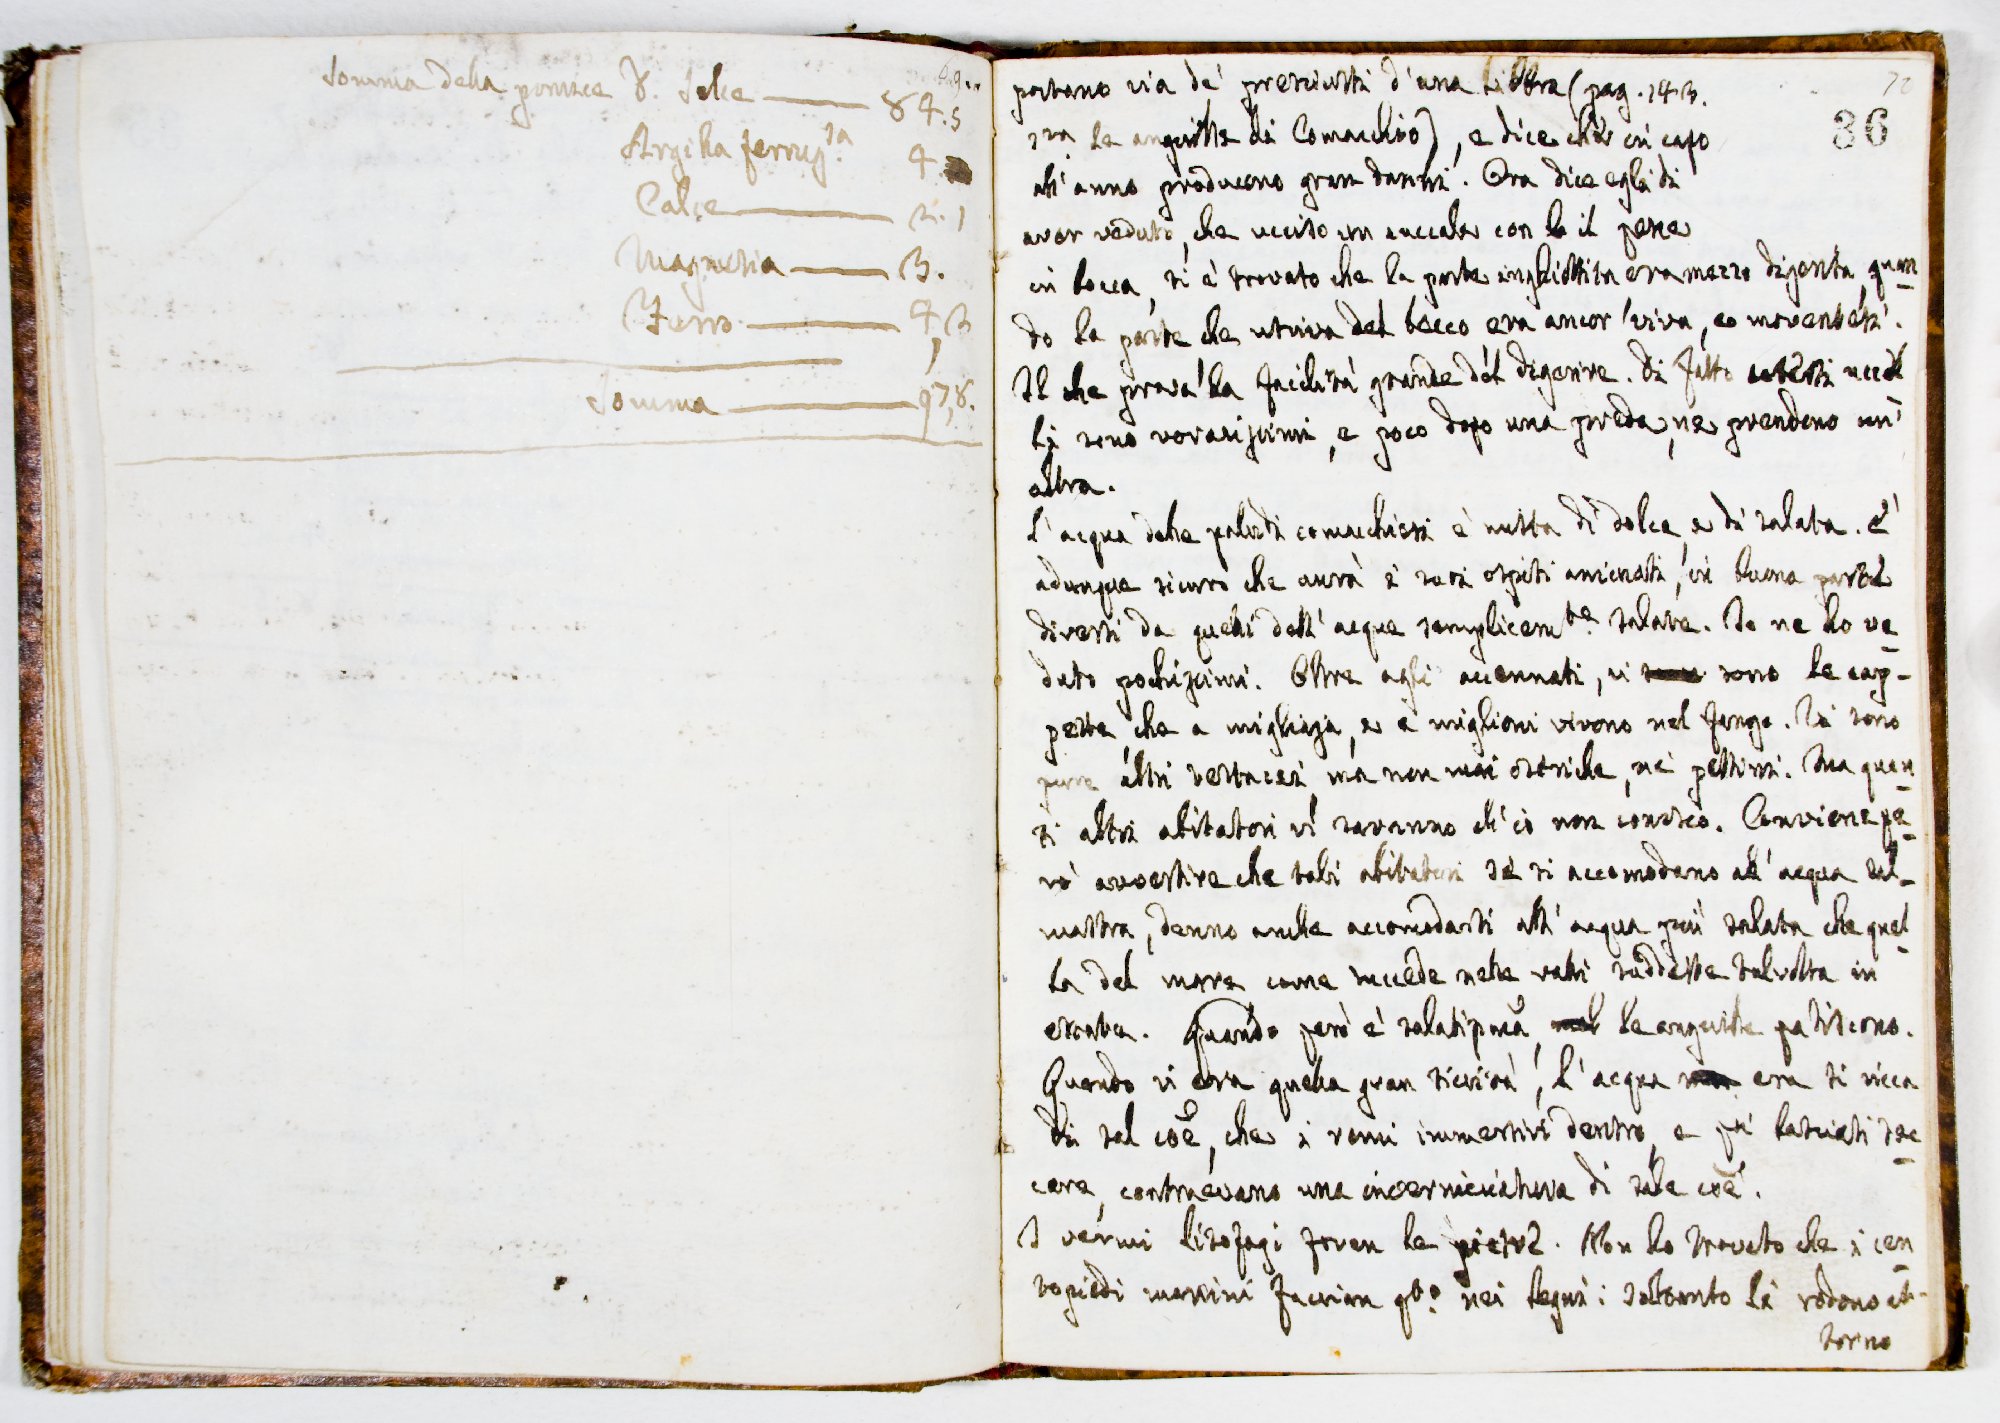 Somma della pomice 8. Selce — 84.5
Argilla ferrug.sa 4.
Calce — 2.1
Magnesia — 3.
Ferro — 4,2
Somma — 97,8.
72
36
portano via de' pesciotti d'una libbra (pag. 143.
sra le anguille di Comacchio), e dice che in capo
all'anno producono gran danni. Ora dice egli di
aver veduto, che ucciso un cuccale con la il pesce
in bocca, si è trovato che la parte inghiottita era mezzo digesta, quan
do la parte che usciva del becco era ancor viva, e moventesi.
Il che prova la facilità grande del digerire. Di fatto cotesti uccel
li sono voracissimi, e poco dopo una preda, ne prendono un'
altra.
L'acqua delle paludi comacchiesi è mista di dolce e di salata. È
adunque sicuro che avrà i suoi ospiti animali, in buona parte
diversi da quelli dell'acque semplicem.te salate. Io ne ho ve
duto pochissimi. Oltre agli accennati, vi sono le cap-
pette che a migliaja, e a miglioni vivono nel fango. Vi sono
pure altri testacei, ma non mai ostriche, nè pettini. Ma quan
ti altri abitatori vi saranno ch'io non conosco. Conviene pe
rò avvertire che tali abitatori se si accomodano all'acqua sal-
mastra, denno anche accomodarsi all'acqua più salata che quel
la del mare come succede nelle valli suddette talvolta in
estate. Quando però è salatissima, le anguille patiscono.
Quando vi era quella gran siccità, l'acqua era sì ricca
di sal coē, che i rami immersivi dentro, e poi lasciati sec
care, contraevano una inverniciatura di sale coē.
I vermi litofagi foran le pietre. Non ho trovato che i cen
topiedi marini faccian q.to nei legni: soltanto li rodono at-
torno